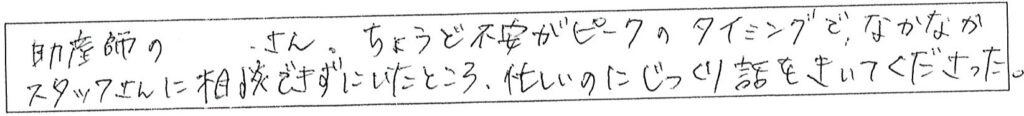 助産師の さん。ちょうど不安がピークのタイミングで、なかなか
スタッフさんに相談できずにいたところ、忙しいのにじっくり話をきいてくださった。